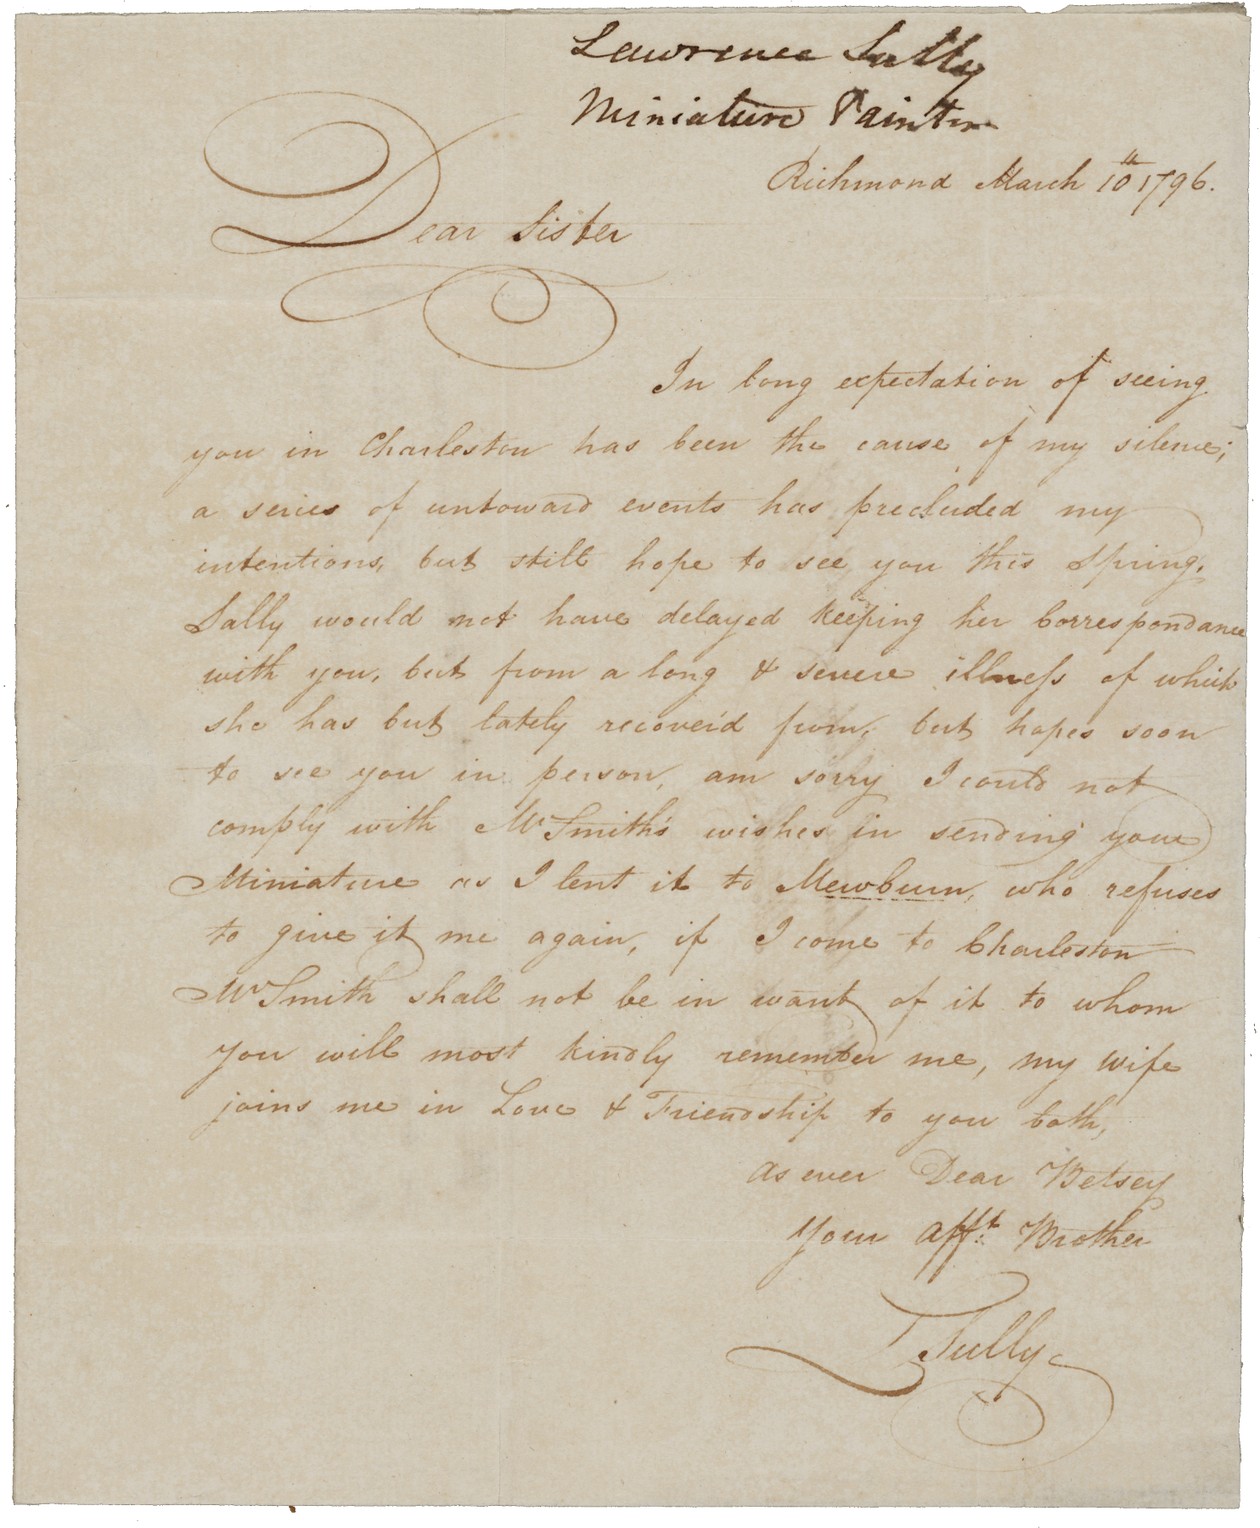 Lawrence Sully
Miniature Painter
Richmond March 10th 1796.
Dear Sister
In long expectation of seeing
you in Charleston has been the cause of my silence;
a series of untoward events has precluded my
intentions, but still hope to see you this Spring.
Sally would not have delayed keeping her Correspondance
with you, but from a long & severe illness of which
she has but lately recover'd from, but hopes soon
to see you in person, am sorry I could not
comply with Mr Smith's wishes in sending your
Miniature as I lent it to Mewburn, who refuses
to give it me again, if I come to Charleston
Mr Smith shall not be in want of it to whom
you will most kindly remember me, my wife
joins me in Love & Friendship to you both,
as ever Dear Betsey
Your afft. Brother
L Sully